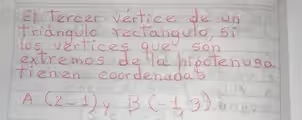 El Tercer vértice de un
triángulo rectangulo, si
los vértices que son
extremos de la hipotenusa
tienen coordenadas
A (2-1) y B (-1,3)